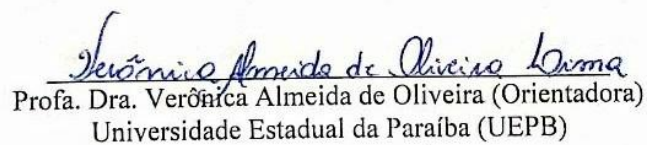 Verônica Almeida de Oliveira Lima
Profa. Dra. Verônica Almeida de Oliveira (Orientadora)
Universidade Estadual da Paraíba (UEPB)